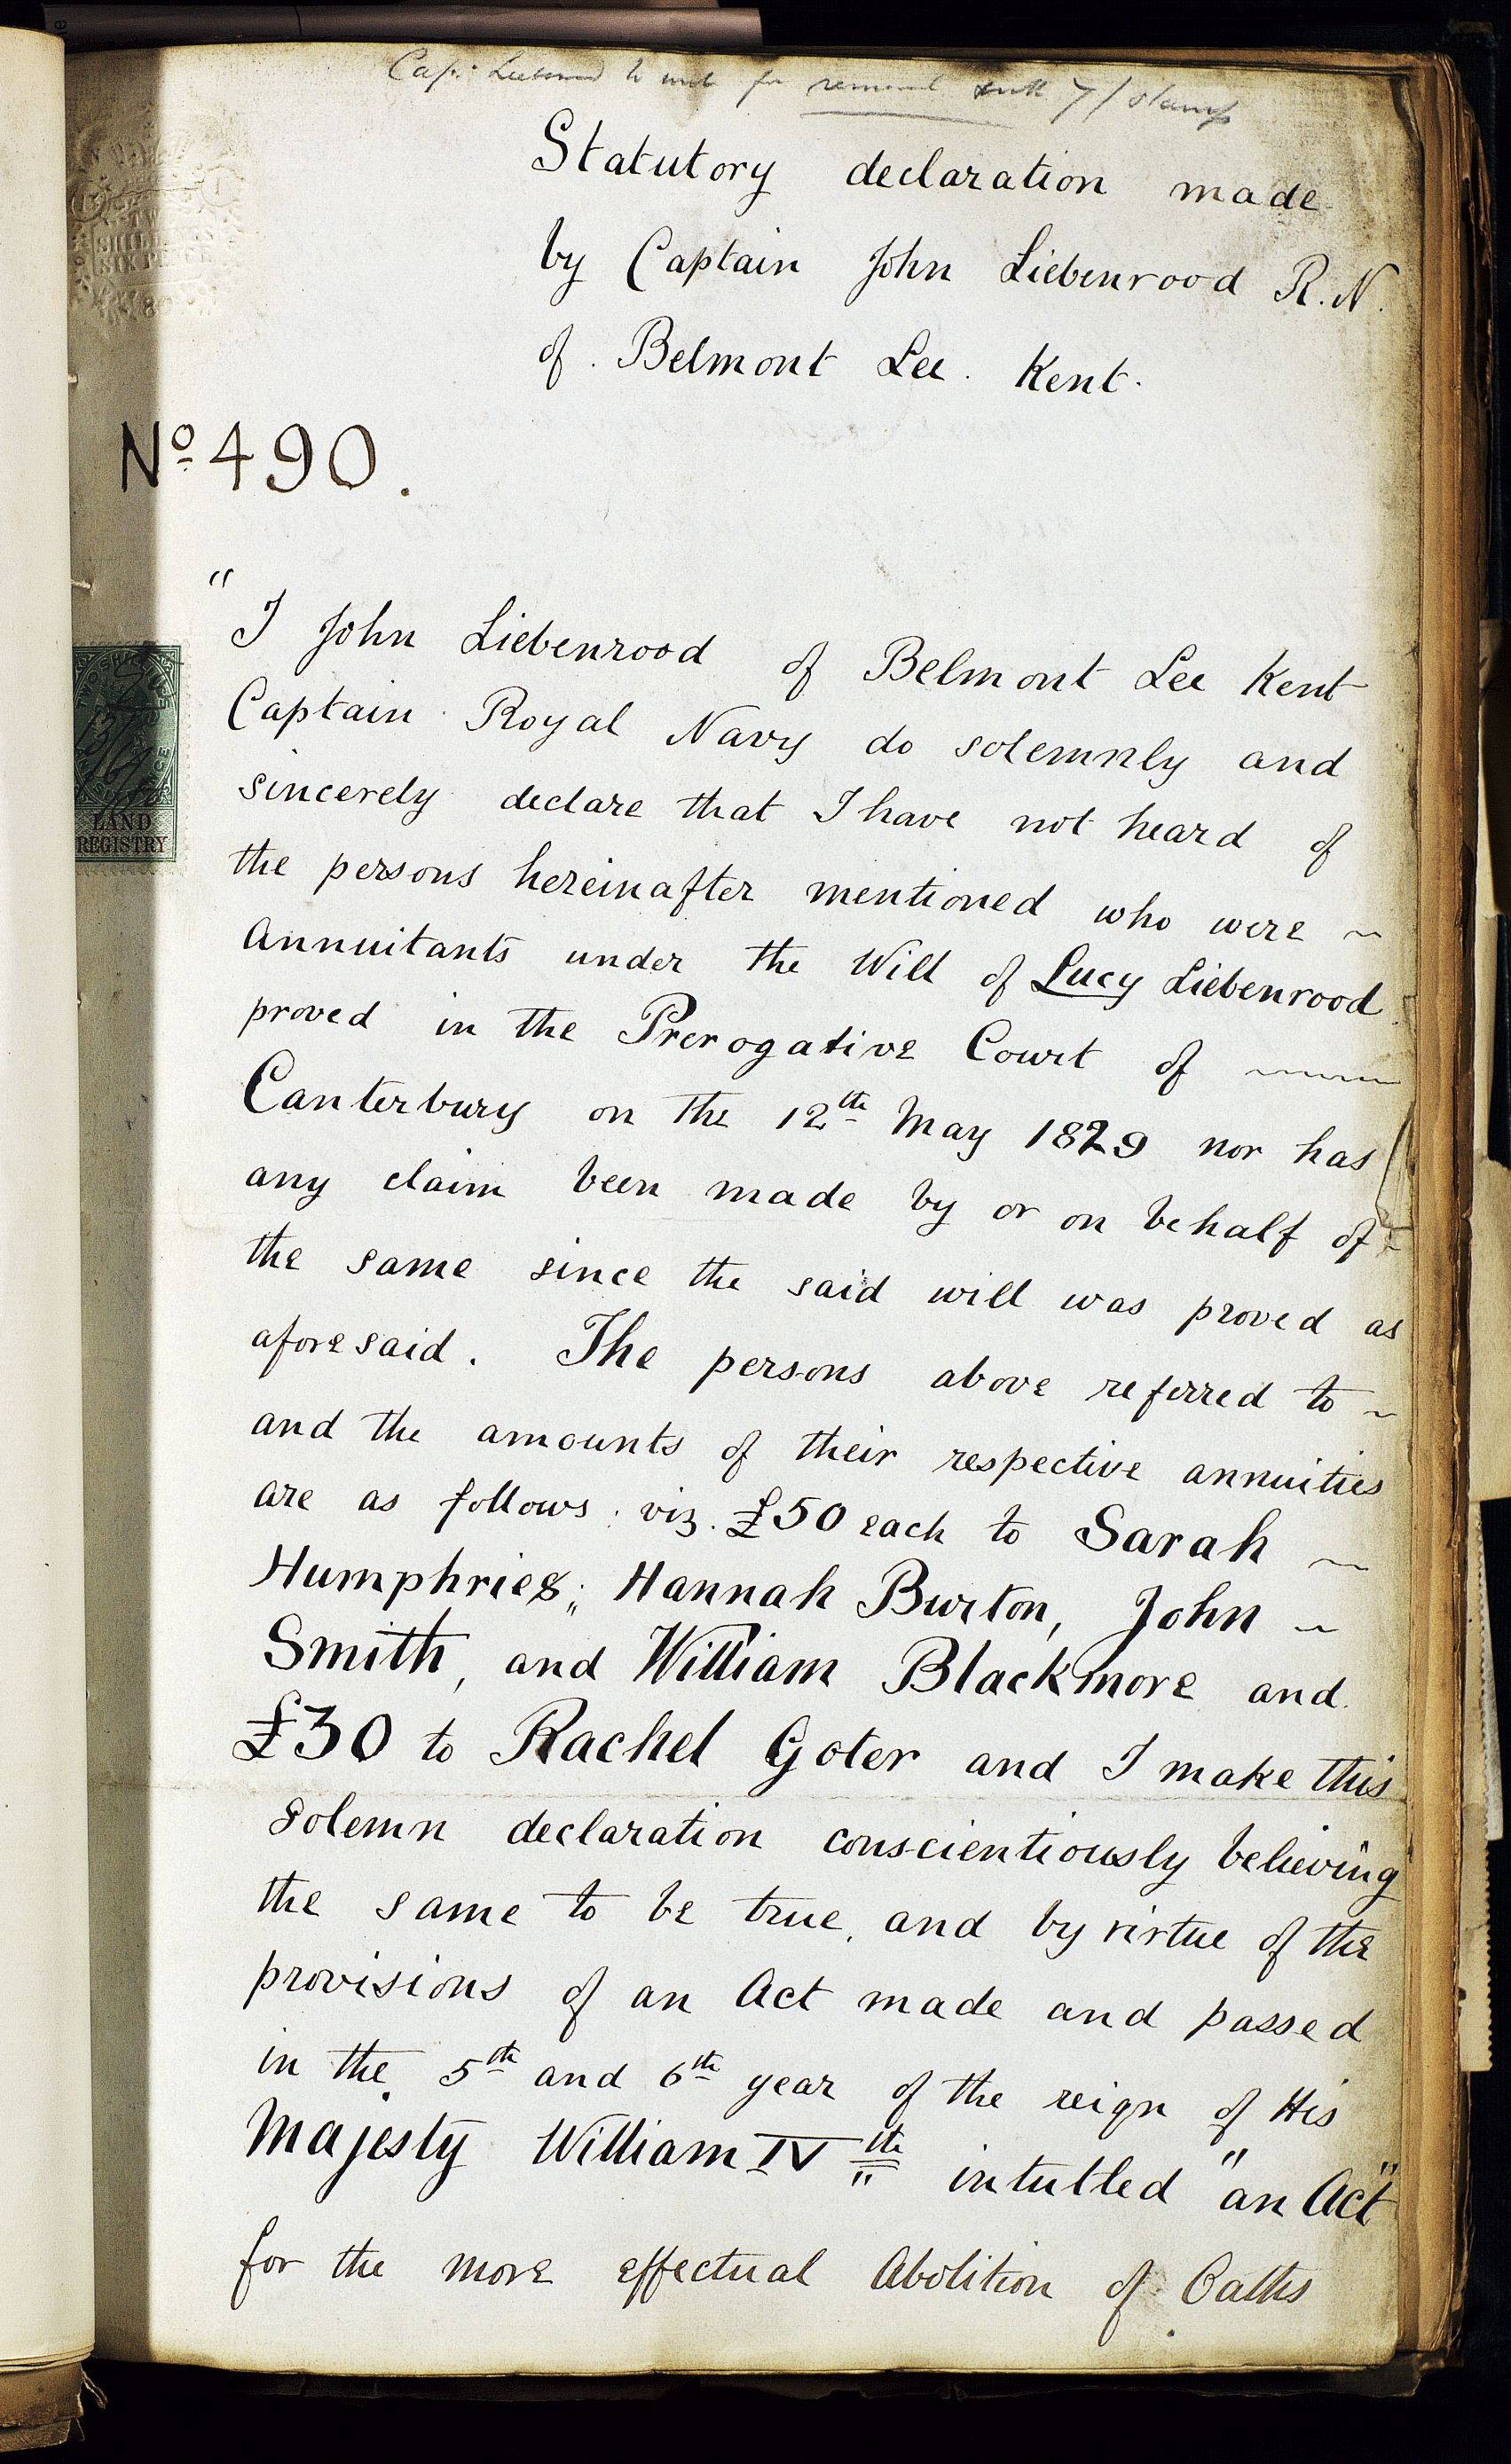 Statutory declaration made
by Captain John Liebenrood R.N.
of Belmont Lee. Kent.
No 490.
" I John Liebenrood of Belmont Lee Kent
Captain Royal Navy do solemnly and
sincerely declare that I have not heard of
the persons hereinafter mentioned who were ~
Annuitants under the Will of Lucy Liebenrood
proved in the Prerogative Court of ~~~
Canterbury on the 12th May 1829 nor has
any claim been made by or on behalf of
the same since the said will was proved as
aforesaid. The persons above referred to ~
and the amounts of their respective annuities
are as follows: viz. £50 each to Sarah ~
Humphries, Hannah Burton, John ~
Smith, and William Blackmore and
£30 to Rachel Goter and I make this
solemn declaration conscientiously believing
the same to be true, and by virtue of the
provisions of an Act made and passed
in the 5th and 6th year of the reign of His
Majesty William IVth intutled "an Act"
for the more effectual Abolition of Oaths
TWO
SHILLINGS
SIX PENCE
LAND
REGISTRY